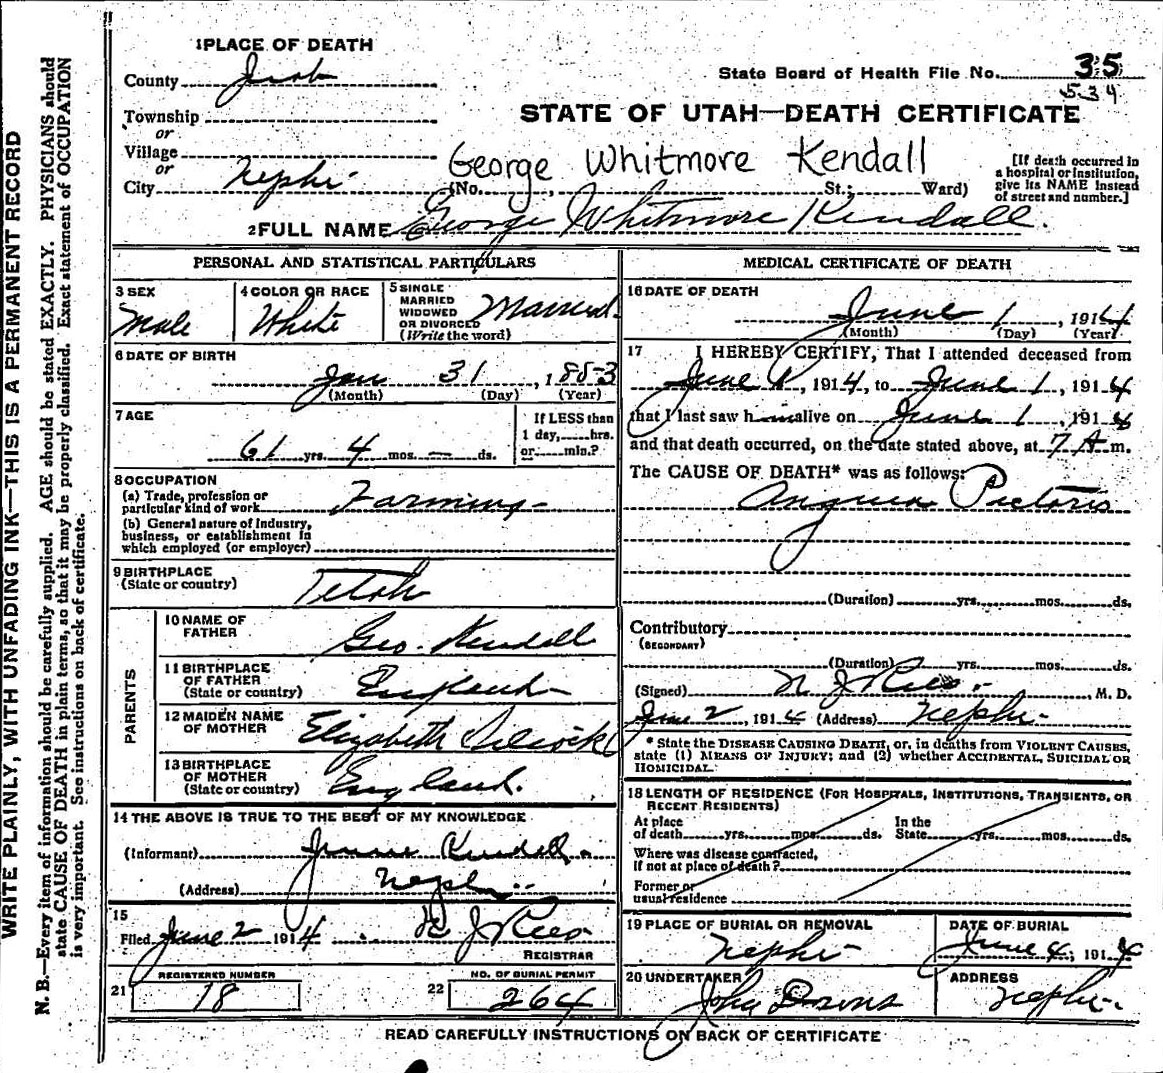 WRITE PLAINLY, WITH UNFADING INK—THIS IS A PERMANENT RECORD
N. B.—Every item of information should be carefully supplied. AGE should be stated EXACTLY. PHYSICIANS should
state CAUSE OF DEATH in plain terms, so that it may be properly classified. Exact statement of OCCUPATION
is very important. See instructions on back of certificate.
1 PLACE OF DEATH
County Juab
Township
or
Village
or
City Nephi
State Board of Health File No. 35
534
STATE OF UTAH—DEATH CERTIFICATE
George Whitmore Kendall
(No. , St.; Ward)
[If death occurred in
a hospital or institution,
give its NAME instead
of street and number.]
2 FULL NAME George Whitmore Kendall.
PERSONAL AND STATISTICAL PARTICULARS
3 SEX
Male
4 COLOR OR RACE
White
5 SINGLE
MARRIED
WIDOWED
OR DIVORCED
(Write the word)
Married.
6 DATE OF BIRTH
Jan 31, 1853
(Month) (Day) (Year)
7 AGE
61 yrs. 4 mos. — ds.
If LESS than
1 day, hrs.
or min.?
8 OCCUPATION
(a) Trade, profession or
particular kind of work Farming-
(b) General nature of Industry,
business, or establishment in
which employed (or employer)
9 BIRTHPLACE
(State or country) Utah
PARENTS
10 NAME OF
FATHER Geo. Kendall
11 BIRTHPLACE
OF FATHER
(State or country) England-
12 MAIDEN NAME
OF MOTHER Elizabeth Silcock
13 BIRTHPLACE
OF MOTHER
(State or country) England.
14 THE ABOVE IS TRUE TO THE BEST OF MY KNOWLEDGE
(Informant) Kendall.
(Address) Nephi
15
Filed June 2 1914
REGISTRAR
REGISTERED NUMBER
21 18
NO. OF BURIAL PERMIT
22 264
MEDICAL CERTIFICATE OF DEATH
16 DATE OF DEATH
June 1, 1914
(Month) (Day) (Year)
17 I HEREBY CERTIFY, That I attended deceased from
June 1, 1914, to June 1, 1914
that I last saw him alive on June 1, 1914
and that death occurred, on the date stated above, at 7 A m.
The CAUSE OF DEATH* was as follows:
Angina Pectoris
(Duration) yrs. mos. ds.
Contributory
(SECONDARY)
(Duration) yrs. mos. ds.
(Signed) Rees. , M. D.
June 2, 1914 (Address) Nephi-
* State the DISEASE CAUSING DEATH, or, in deaths from VIOLENT CAUSES,
state (1) MEANS OF INJURY; and (2) whether ACCIDENTAL, SUICIDAL OR
HOMICIDAL.
18 LENGTH OF RESIDENCE (FOR HOSPITALS, INSTITUTIONS, TRANSIENTS, OR
RECENT RESIDENTS)
At place
of death yrs. mos. ds.
In the
State yrs. mos. ds.
Where was disease contracted,
If not at place of death?
Former or
usual residence
19 PLACE OF BURIAL OR REMOVAL
Nephi-
DATE OF BURIAL
June 4, 1914
20 UNDERTAKER
ADDRESS
Nephi-
READ CAREFULLY INSTRUCTIONS ON BACK OF CERTIFICATE